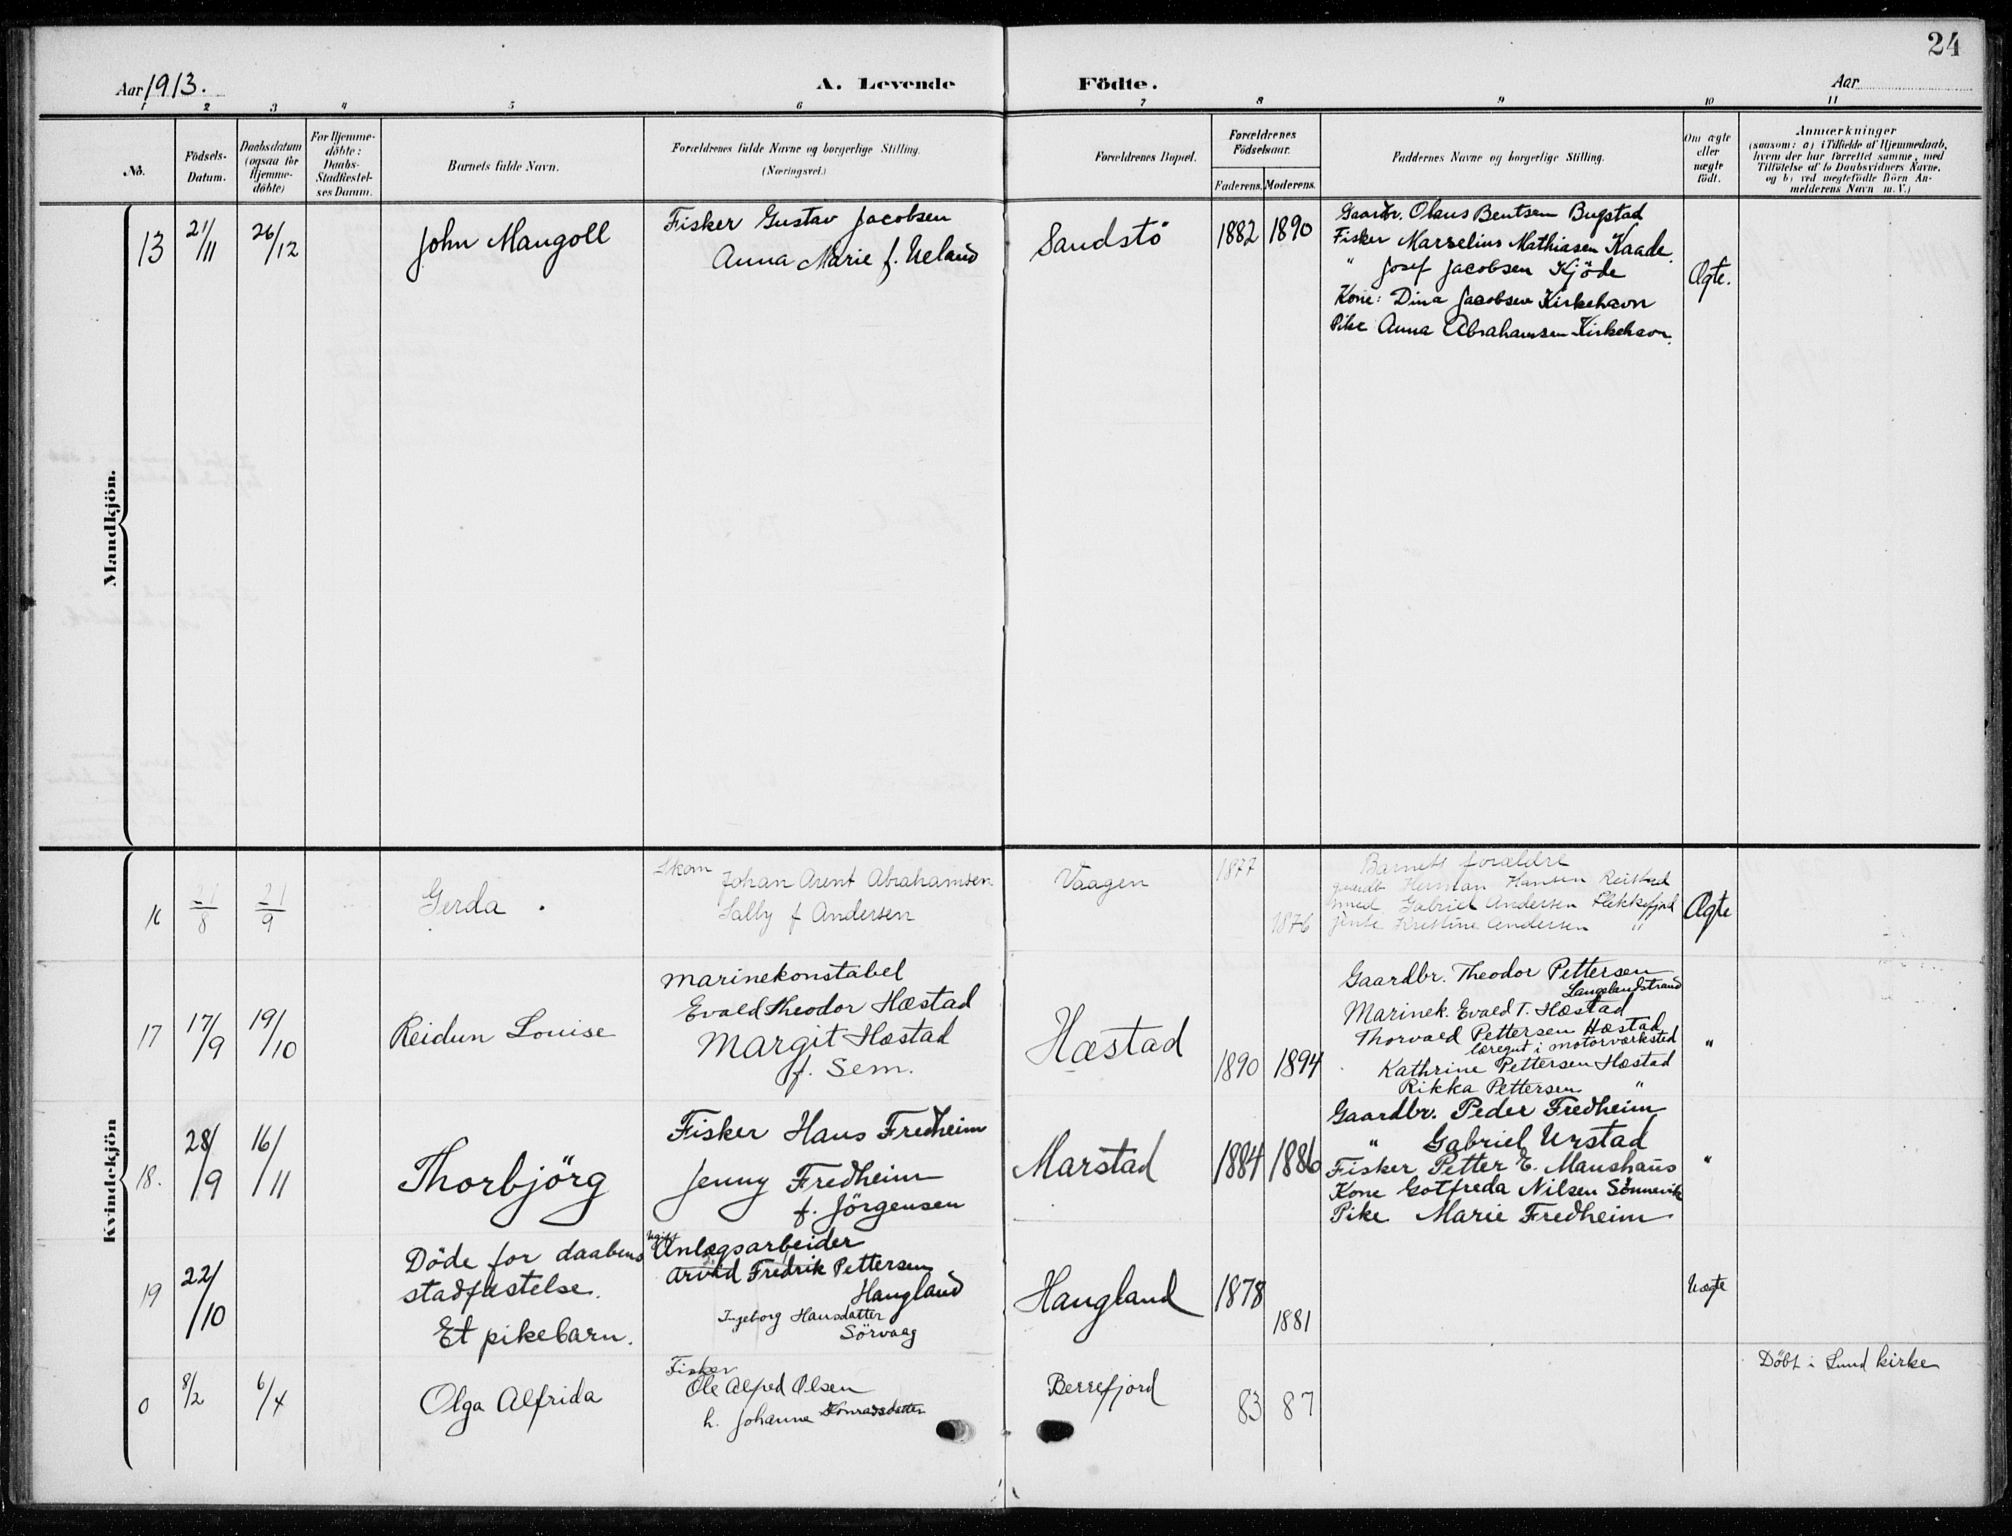 24
Aar 1913.
A. Levende Födte.
Aar
1 2 3 4 5 6 7 8 9 10 11
No.
Födsels-
Datum.
Daabsdatum
(ogsaa for
Hjemme-
döbte)
For Hjemme-
döbte:
Daabs-
Stadfæstel-
ses Datum.
Barnets fulde Navn.
Forældrenes fulde Navne og borgerlige Stilling.
(Næringsvei.)
Forældrenes Bopæl.
Forældrenes
Födselsaar.
Faderens. Moderens.
Faddernes Navne og borgerlige Stilling.
Om ægte
eller
uægte
födt.
Anmærkninger
(saasom: a) i Tilfælde af Hjemmedaab,
hvem der har forrettet samme, med
Tilföielse af to Daabsvidners Navne.
og b) ved uægtefödte Börn An-
melderens Navn m. V.)
Mandkjön.
13
21/11
26/12
John Mangoll
Fisker Gustav Jacobsen
Anna Marie f. Ueland
Sandstö
1882 1890
Gaardbr. Olaus Bentsen Bugstad
Fisker Marselius Mathiasen Kaade
" Josef Jacobsen Kjöde
Kone: Dina Jacobsen Kirkehavn
Pike Anna Abrahamsen Kirkehavn.
Ægte.
Kvindekjön
16
21/8
21/9
Gerda
Skom
Johan Arent Abrahamsen
Sally f Andersen
Vaagen
1877
1876
Barnets forældre
gaardb Herman Hansen Reistad
smed Gabriel Andersen Flekkefjord
jente Kristine Andersen "
Ægte
17
17/9
19/10
Reidun Louise
Marinekonstabel
Evald Theodor Hæstad
Margit Hæstad
f. Sem.
Hæstad
1890 1894
Gaardbr. Theodor Pettersen
Langelandstrand
Marinek. Evald T. Hæstad
Thorvald Pettersen Hæstad
læregut i motorværksted
Kathrine Pettersen Hæstad
Rikka Pettersen "
"
18.
28/9
16/11
Thorbjörg
Fisker Hans Fredheim
Jenny Fredheim
f. Jörgensen
Marstad
1884 1886
Gaardbr. Peder Fredheim
" Gabriel Urstad
Fisker Petter E. Maushaus
Kone Gotfreda Nilsen Sönnevik
Pike Marie Fredheim
"
19
22/10
Döde for daabens
stadfæstelse.
Et pikebarn.
Ugift
Anlægsarbeider
Arvid Fredrik Pettersen
Haugland
Ingeborg Hansdatter
Sörvaag
Haugland
1878
1881
Uægte
0
8/2
6/4
Olga Alfrida
Fisker
Ole Alfred Olsen
h. Johanna Konradsdatter
Berrefjord
83 87
Döbt i Lund kirke